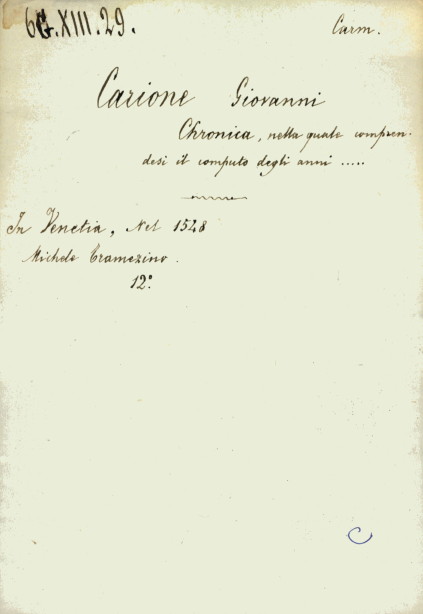 6G.XIII.29.
Carm.
Carione Giovanni
Chronica, nella quale compren-
desi il computo degli anni .....
In Venetia, Nel 1548
Michele Tramezino.
12º.
C